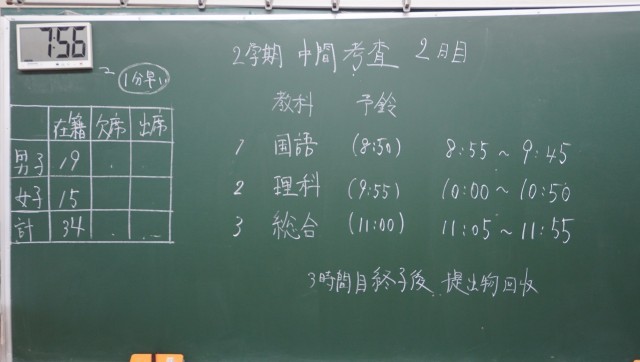 7:56
1分早い
2学期 中間考査 2日目
教科 予鈴
1 国語 (8:50) 8:55~9:45
2 理科 (9:55) 10:00~10:50
3 総合 (11:00) 11:05~11:55
3時間目終了後、提出物回収
在籍 欠席 出席
男子 19
女子 15
計 34